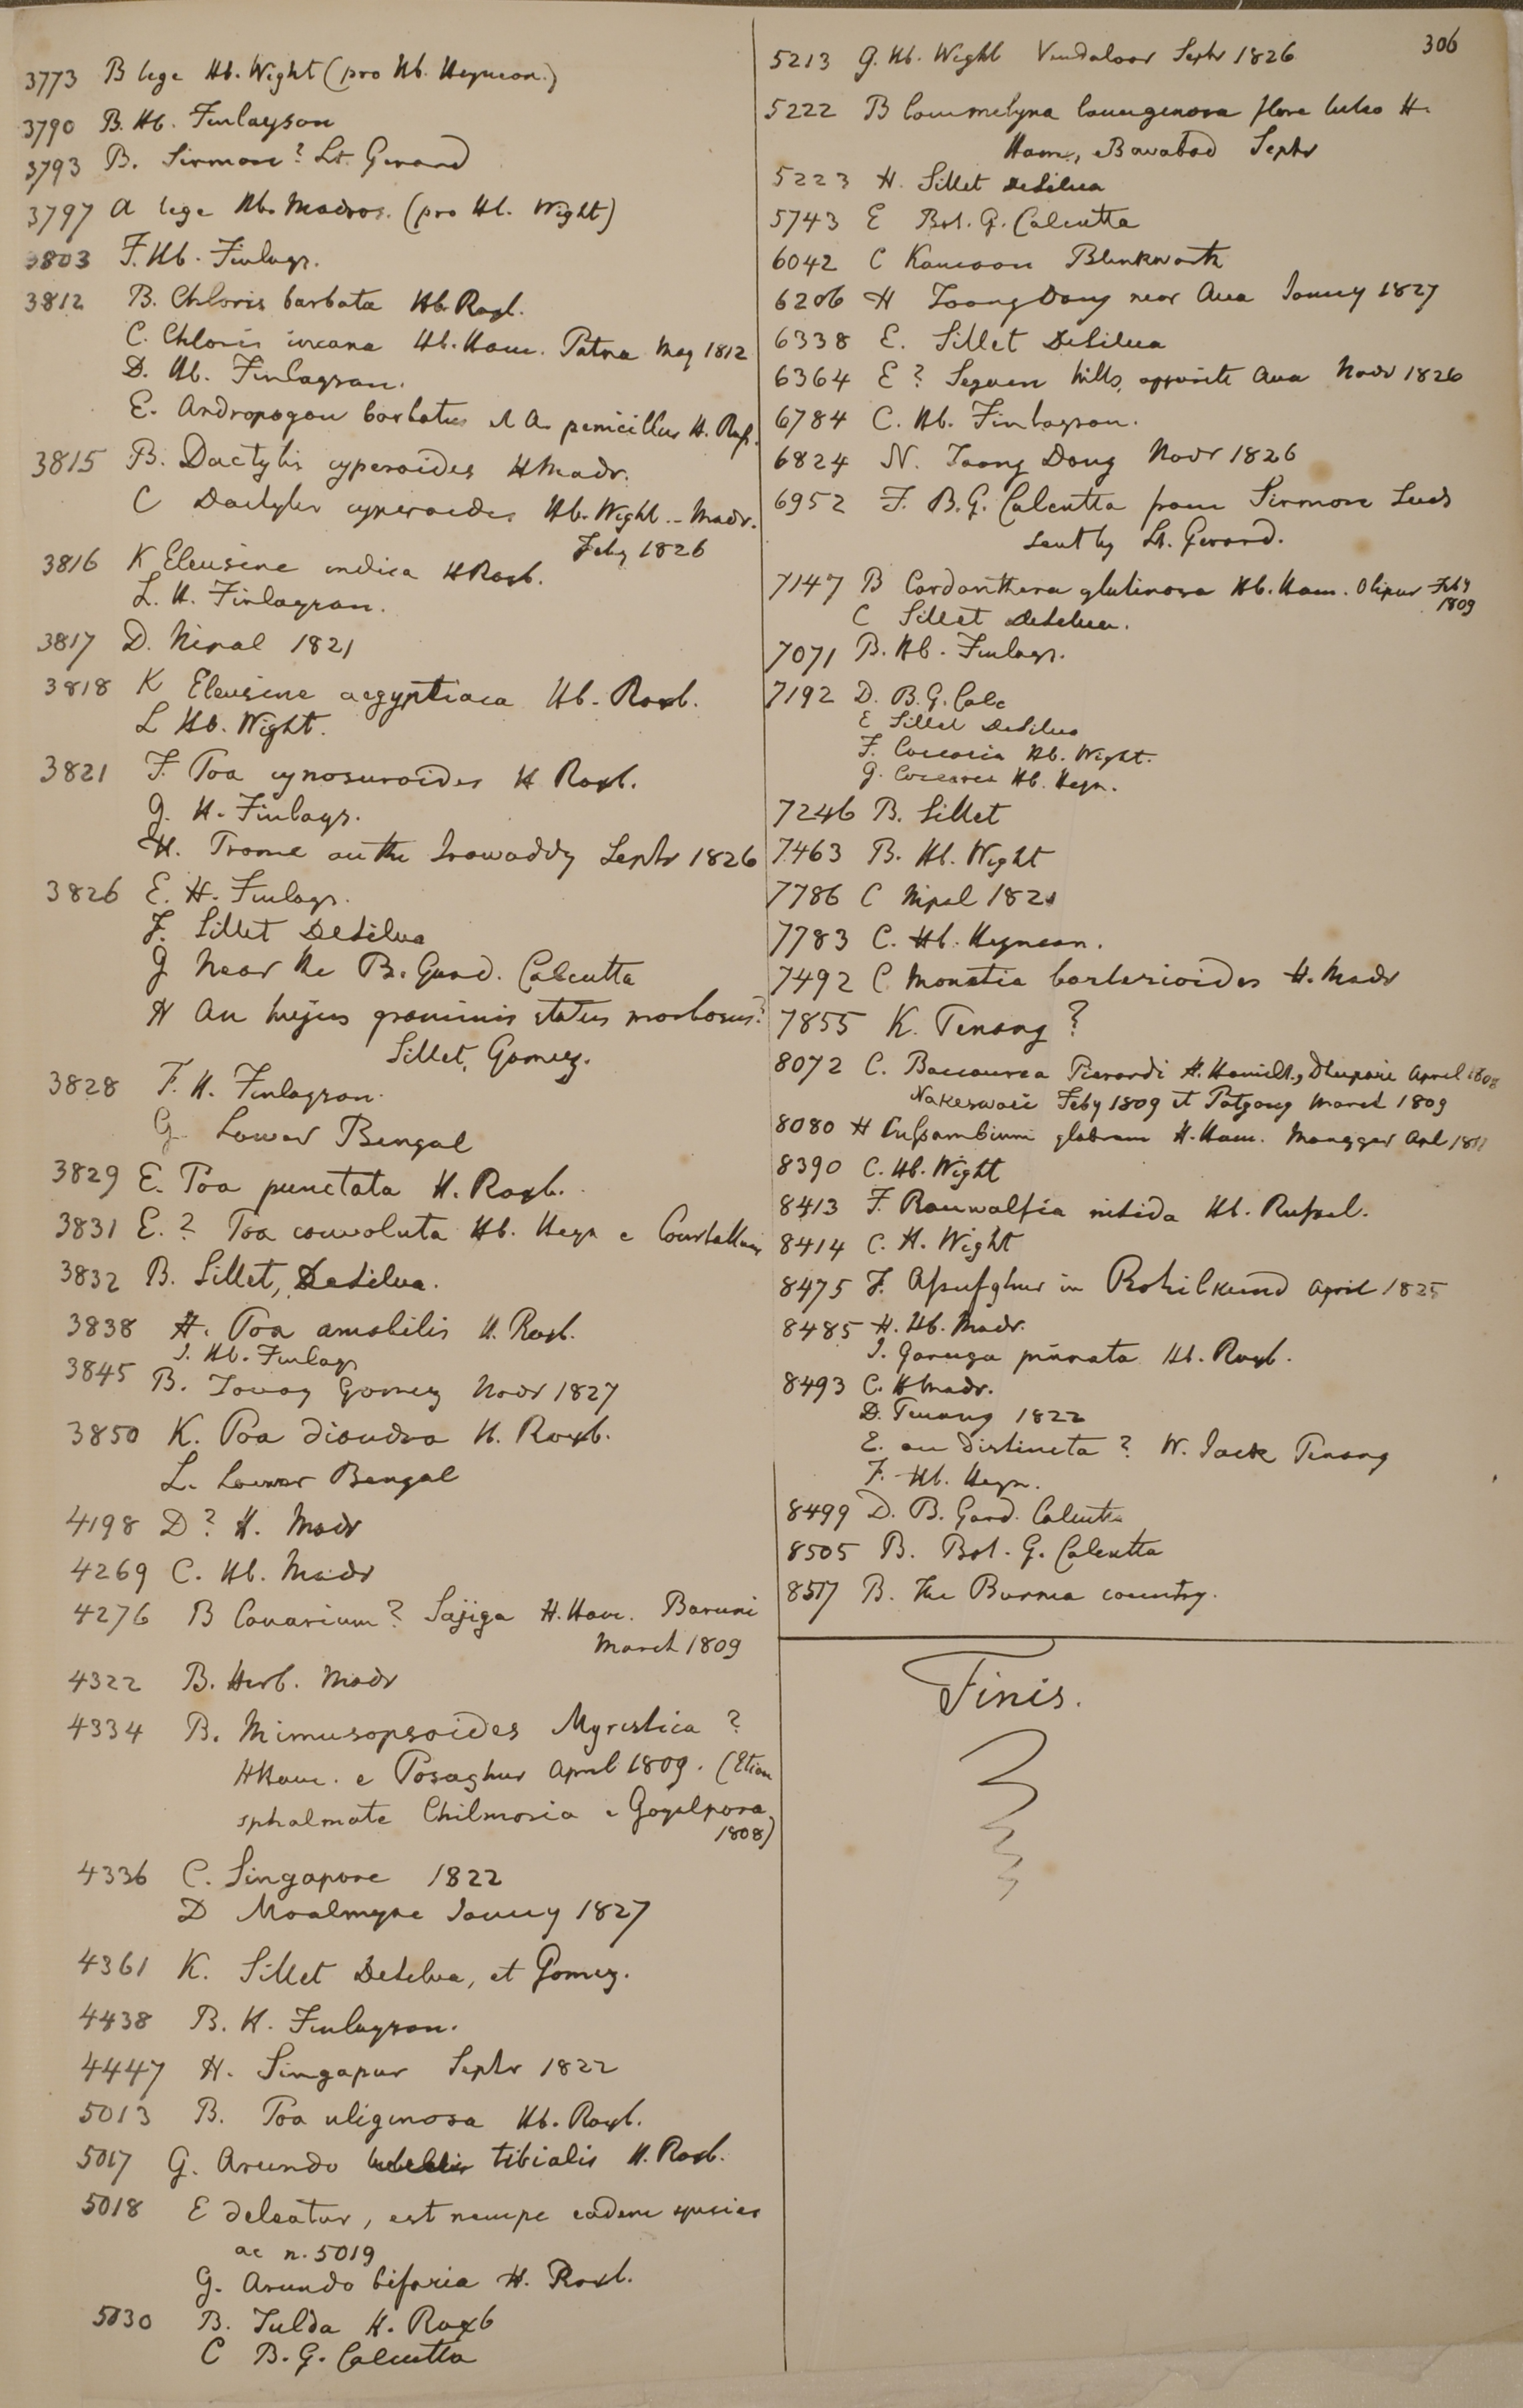 306
3773 B lege Hb. Wight (pro Hb. Heynean.)
3790 B. Hb. Finlayson
3793 B. Sirmore? Lt. Gerard
3797 A lege Hb. Madras. (pro Hb. Wight)
3803 F. Hb. Finlays.
3812 B. Chloris barbata Hb. Roxb.
C. Chloris incana Hb. Ham. Patna May 1812
D. Hb. Finlayson.
E. Andropogon barbatus et A. penicillus H. Rusſ.
3815 B. Dactylis cyperoides H Madr.
C Dactylis cyperoides Hb. Wight. - Madr.
Feby 1826
3816 K Eleusine indica H Roxb.
L. H. Finlayson.
3817 D. Nipal 1821
3818 K Eleusine aegyptiaca Hb. Roxb.
L Hb. Wight.
3821 F. Poa cynosuroides H Roxb.
G. H. Finlays.
H. Prome on the Irawaddy Septr 1826
3826 E. H. Finlays.
F. Sillet DeSilva
G Near the B. Gard. Calcutta
H An hujus graminis status morbosus?
Sillet, Gomez.
3828 F. H. Finlayson.
G. Lower Bengal
3829 E. Poa punctata H. Roxb.
3831 E.? Poa convoluta Hb. Heyn e Courtallum
3832 B. Sillet, DeSilva.
3838 H. Poa amabilis H. Roxb.
I. Hb. Finlays
3845 B. Tavoy Gomez Novr 1827
3850 K. Poa diandra H. Roxb.
L. Lower Bengal
4198 D? H. Madr
4269 C. Hb. Madr
4276 B Canarium? Sajiga H. Ham. Baruni
March 1809
4322 B. Herb. Madr
4334 B. Mimusopsoides Myristica?
HHam. e Posaghur April 1809. (Etiam
sphalmate Chilmoria e Goyalpora
1808)
4336 C. Singapore 1822
D Moalmyne Januy 1827
4361 K. Sillet DeSilva, et Gomez.
4438 B. H. Finlayson.
4447 H. Singapur Septr 1822
5013 B. Poa uliginosa Hb. Roxb.
5017 G. Arundo tibialis H. Roxb.
5018 E deleatur, est nempe eadem species
ac n. 5019
G. Arundo bifaria H. Roxb.
5030 B. Tulda H. Roxb
C B. G. Calcutta
5213 G. Hb. Wight Vendaloor Septr 1826
5222 B lanuginosa flore luteo H.
Ham., Septr
5223 H. Sillet DeSilva
5743 E Bot. G. Calcutta
6042 C Kamaon Blinkworth
6206 H Toong Dong near Ava Januy 1827
6338 E. Sillet DeSilva
6364 E? Segaen hills, opposite Ava Novr 1826
6784 C. Hb. Finlayson.
6824 N. Toong Dong Novr 1826
6952 F. B. G. Calcutta from Sirmore Seeds
sent by Lt. Gerard.
7147 B Cardanthera glutinosa Hb. Ham. Olipur Feby
1809
C Sillet DeSilva.
7071 B. Hb. Finlays.
7192 D. B. G. Calc
E Sillet DeSilva
F. Hb. Wight.
G. Hb. Heyn.
7246 B. Sillet
7463 B. Hb. Wight
7786 C Nipal 1821
7783 C. Hb. Heynean.
7492 C Monetia barlerioides H. Madr
7855 K. Penang?
8072 C. Baccaurea Pierardi H. Hamilt., April 1808
Feby 1809 et March 1809
8080 H Cuſsambium glabrum H. Ham. Apl 1811
8390 C. Hb. Wight
8413 F. Rauwolfia nitida Hb. Ruſsel.
8414 C. H. Wight
8475 F. in Rohilkund April 1825
8485 H. Hb. Madr.
I. Garuga pinnata Hb. Roxb.
8493 C. H Madr.
D. Penang 1822
E. an distincta? W. Jack Penang
F. Hb. Heyn.
8499 D. B. Gard. Calcutta
8505 B. Bot. G. Calcutta
8517 B. The Burma country.
Finis.